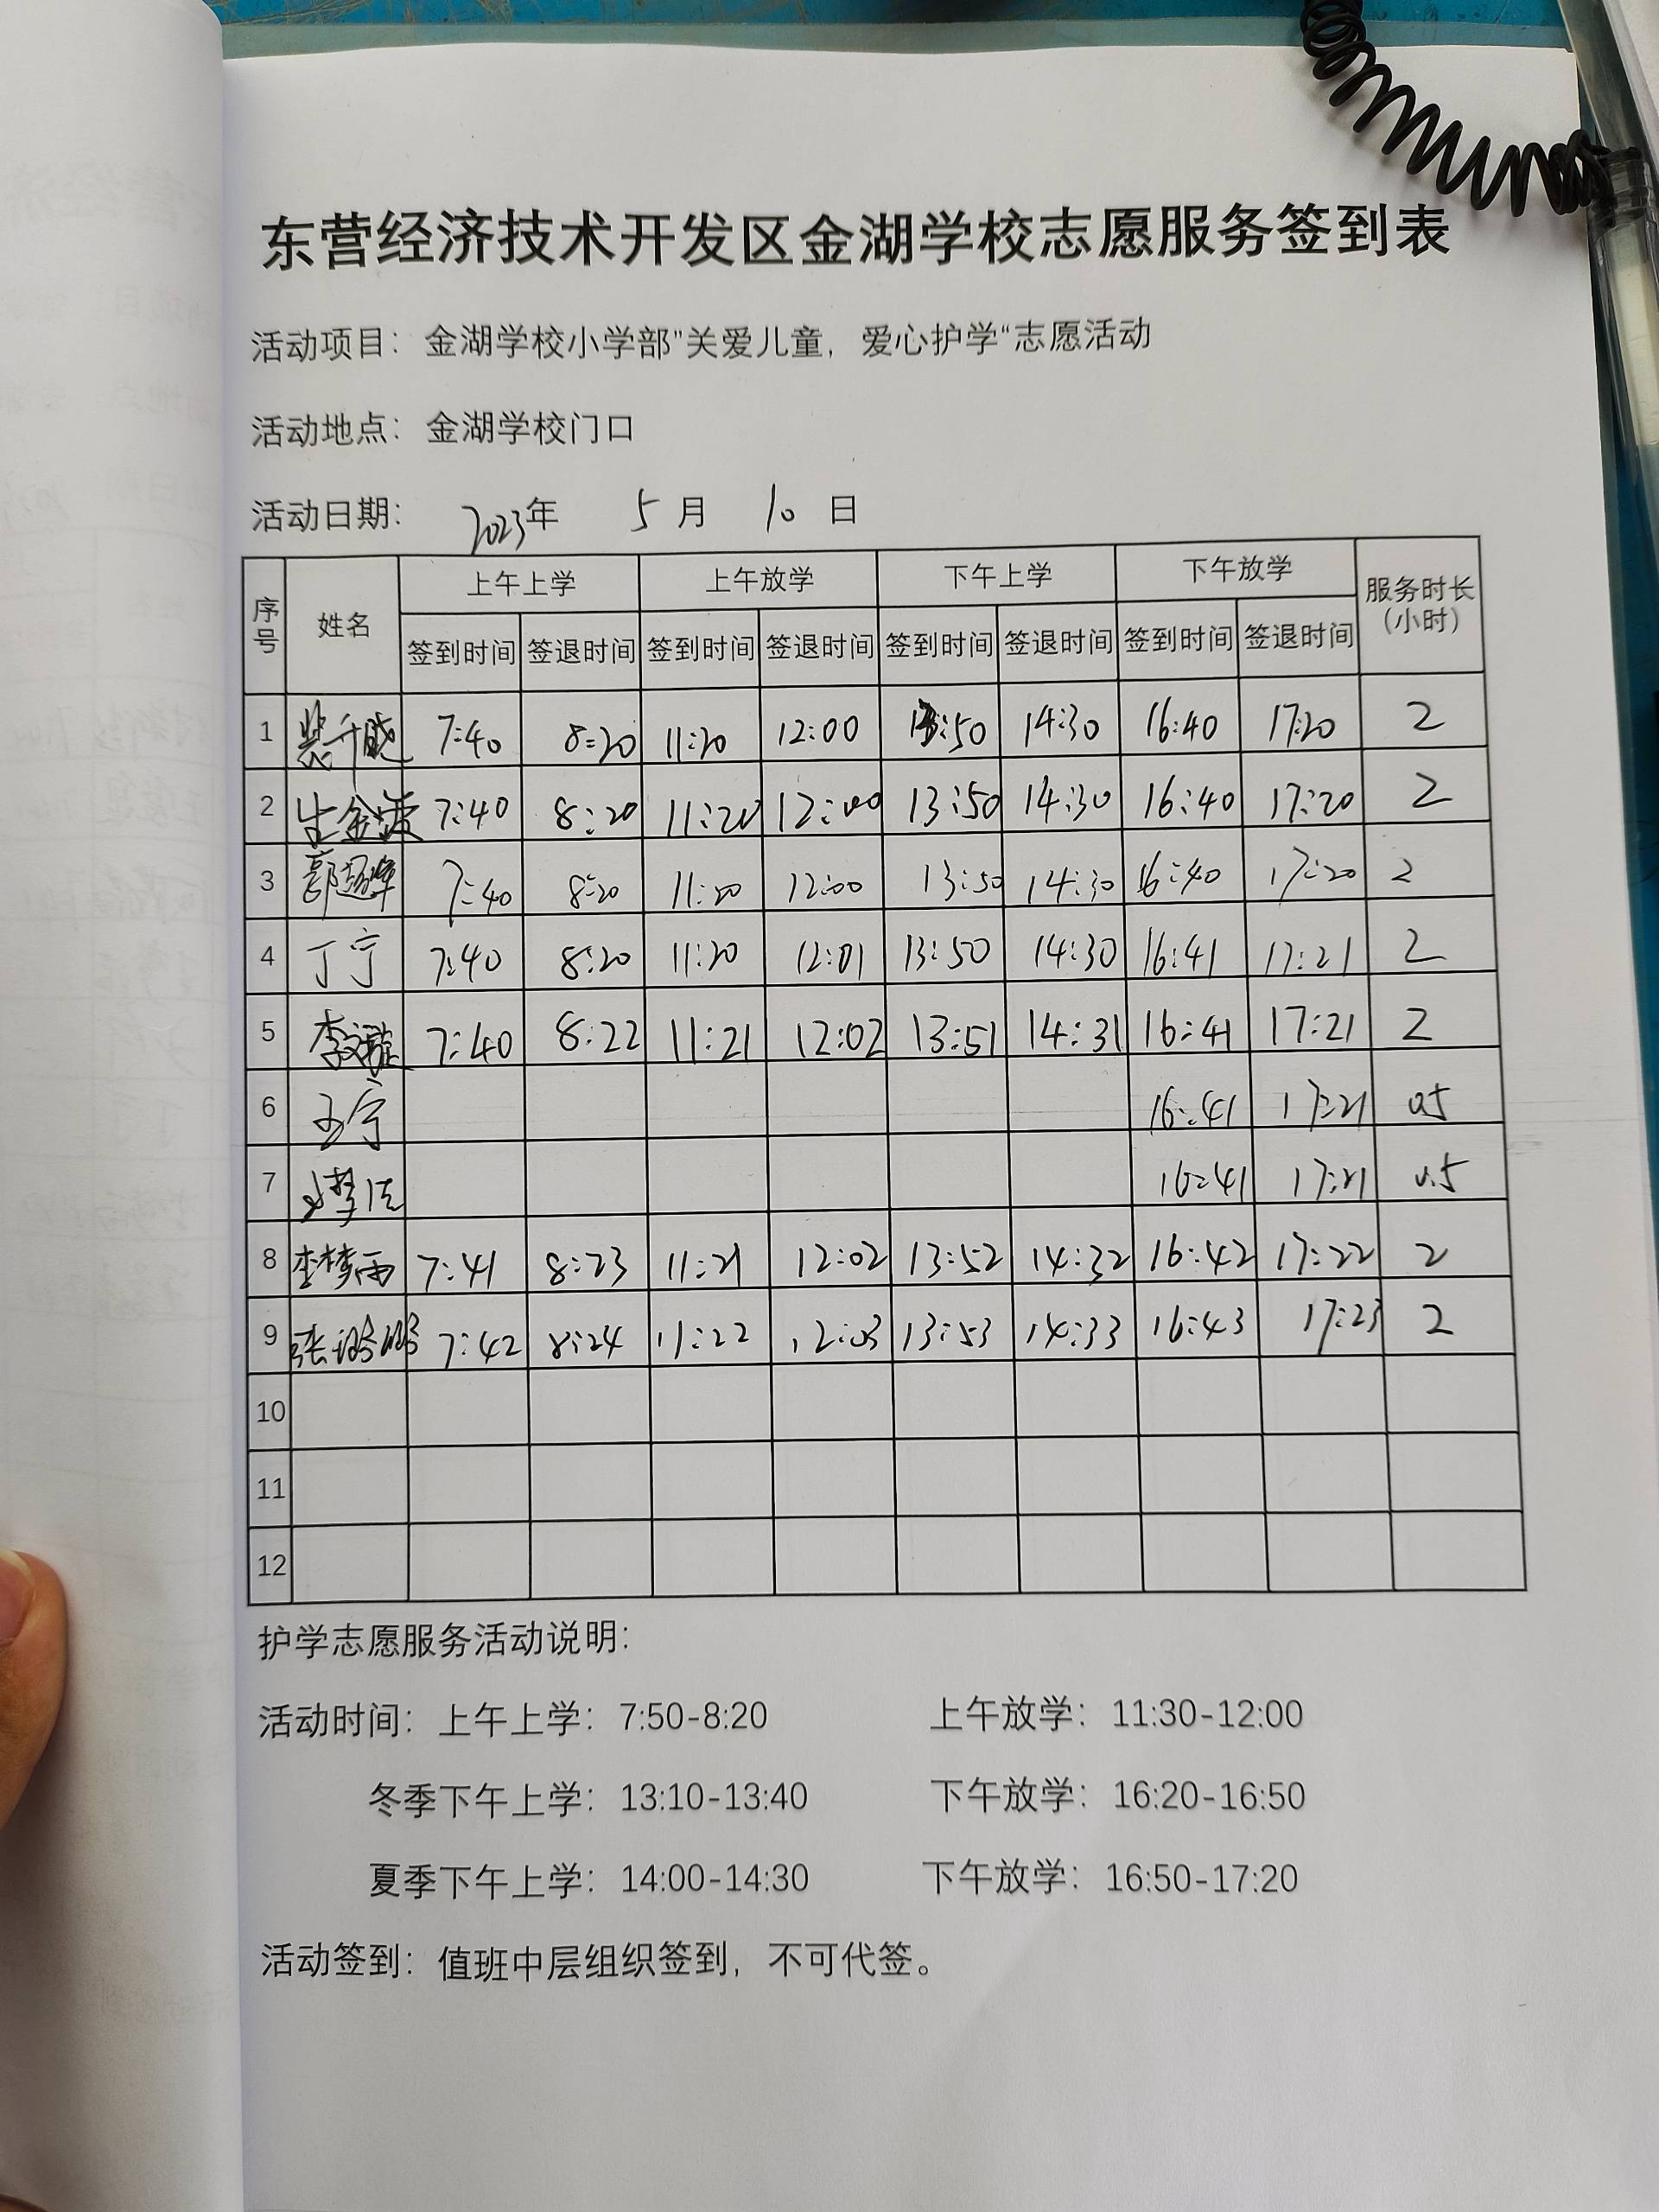 东营经济技术开发区金湖学校志愿服务签到表
活动项目：金湖学校小学部”关爱儿童，爱心护学“志愿活动
活动地点：金湖学校门口
活动日期： 2023年 5月 10日
序号 姓名 上午上学 上午放学 下午上学 下午放学 服务时长（小时）
签到时间 签退时间 签到时间 签退时间 签到时间 签退时间 签到时间 签退时间
1 7:40 8:20 11:20 12:00 13:50 14:30 16:40 17:20 2
2 7:40 8:20 11:20 12:00 13:50 14:30 16:40 17:20 2
3 7:40 8:20 11:20 12:00 13:50 14:30 16:40 17:20 2
4 丁宁 7:40 8:20 11:20 12:01 13:50 14:30 16:41 17:21 2
5 7:40 8:22 11:21 12:02 13:51 14:31 16:41 17:21 2
6 16:41 17:21 0.5
7 16:41 17:21 0.5
8 李梦雨 7:41 8:23 11:21 12:02 13:52 14:32 16:42 17:22 2
9 7:42 8:24 11:22 12:03 13:53 14:33 16:43 17:23 2
10
11
12
护学志愿服务活动说明：
活动时间：上午上学：7:50-8:20 上午放学：11:30-12:00
冬季下午上学：13:10-13:40 下午放学：16:20-16:50
夏季下午上学：14:00-14:30 下午放学：16:50-17:20
活动签到：值班中层组织签到，不可代签。